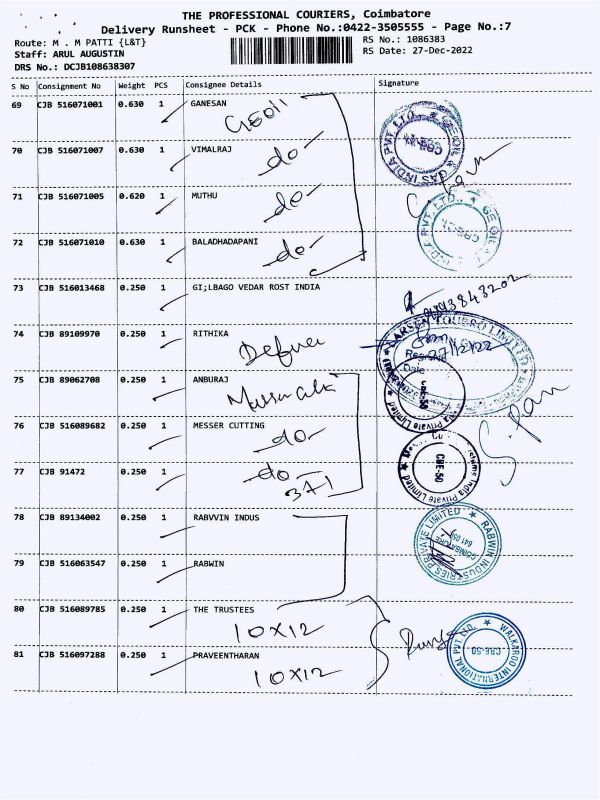 THE PROFESSIONAL COURIERS, Coimbatore
Delivery Runsheet - PCK - Phone No.:0422-3505555 - Page No.:7
Route: M . M PATTI {L&T} RS No.: 1086383
Staff: ARUL AUGUSTIN RS Date: 27-Dec-2022
DRS No.: DCJB108638307
S No Consignment No Weight PCS Consignee Details Signature
69 CJB 516071001 0.630 1 GANESAN
70 CJB 516071007 0.630 1 VIMALRAJ
do
71 CJB 516071005 0.620 1 MUTHU
do
72 CJB 516071010 0.630 1 BALADHADAPANI
do
73 CJB 516013468 0.250 1 GI;LBAGO VEDAR ROST INDIA
74 CJB 89109970 0.250 1 RITHIKA
LARSEN & TOUBRO LIMITED
27/12/22
Date
75 CJB 89062708 0.250 1 ANBURAJ
76 CJB 516089682 0.250 1 MESSER CUTTING
do
CBE-50
77 CJB 91472 0.250 1
do
371
78 CJB 89134002 0.250 1 RABVVIN INDUS
RABWIN INDUSTRIES PRIVATE LIMITED
COIMBATORE
79 CJB 516063547 0.250 1 RABWIN
80 CJB 516089785 0.250 1 THE TRUSTEES
10X12
WALKAROO INTERNATIONAL PVT LTD.
CBE-50
81 CJB 516097288 0.250 1 PRAVEENTHARAN
10X12